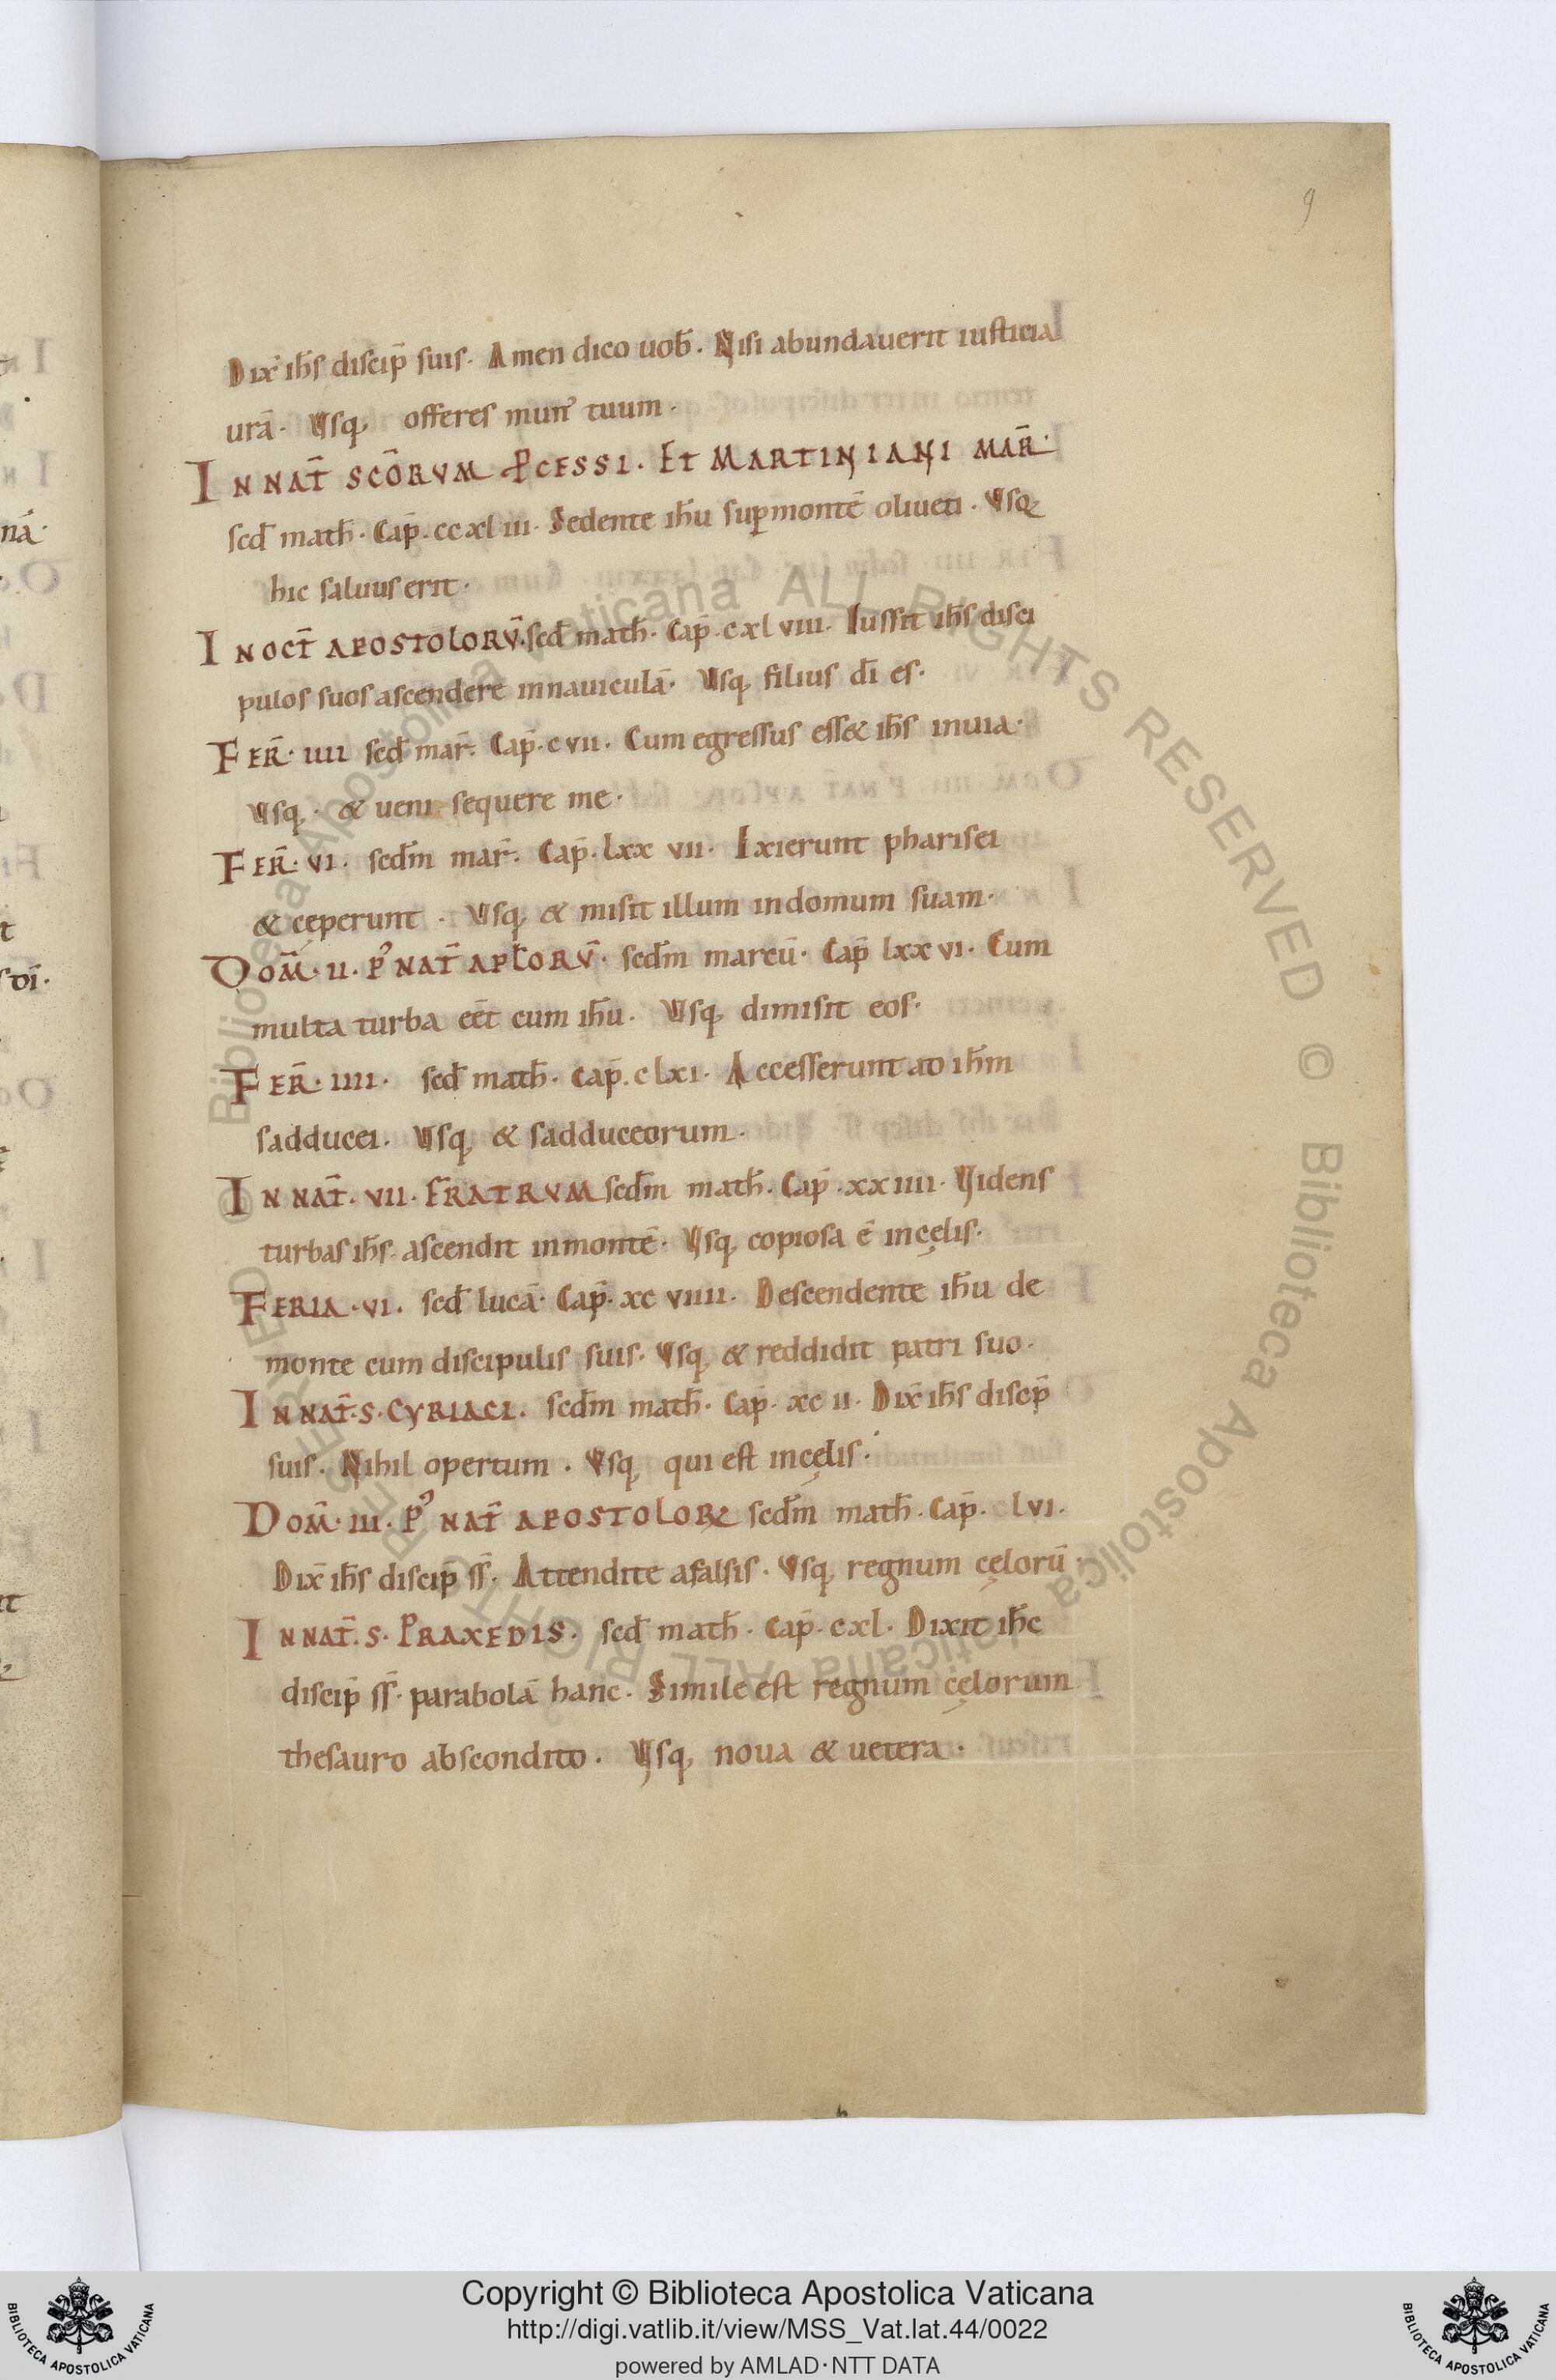 9
Dix̄ ih̄s discip̄ suis. Amen dico uob̄. Nisi abundauerit iusticia
urā. Usq; offeres mun̄ tuum.
IN NAT̄ SCŌRVM PCESSI. ET MARTINIANI MAR̄.
scd̄ math̄. Cap̄. ccxliii. Sedente ih̄u sup montē oliueti. Vsq;
hic saluus erit.
IN OCT̄ APOSTOLORV̄. scd̄ math̄. Cap̄. cxlviii. Iussit ih̄s disci
pulos suos ascendere in nauiculā. Usq; filius dī es.
FER̄. IIII scd̄ mar̄. Cap̄. cvii. Cum egressus ess& ih̄s in uia.
Vsq;. & ueni sequere me.
FER̄. VI. scd̄m mar̄. Cap̄. lxxvii. Exierunt pharisei
& cęperunt. Usq; & misit illum in domum suam.
DOM̄. II. P' NAT̄ APL̄ORV̄. scd̄m marcū. Cap̄ lxxvi. Cum
multa turba eēt cum ih̄u. Usq; dimisit eos.
FER̄. IIII. scd̄ math̄. Cap̄. clxi. Accesserunt ad ih̄m
sadducei. Usq; & sadduceorum.
IN NAT̄. VII. FRATRVM scd̄m math̄. Cap̄. xxiiii. Videns
turbas ih̄s. ascendit in montē. Vsq; copiosa ē in cęlis.
FERIA. VI. scd̄ lucā. Cap̄. xcviiii. Descendente ih̄u de
monte cum discipulis suis. Vsq; & reddidit patri suo.
IN NAT̄. S. CYRIACI. scd̄m math̄. Cap̄. xcii. Dix̄ ih̄s discip̄
suis. Nihil opertum. Vsq; qui est in cęlis.
DOM̄. III. P' NAT̄ APOSTOLOꝜ scd̄m math̄. Cap̄. lvi.
Dix̄ ih̄s discip̄ ss̄. Attendite a falsis. Vsq; regnum cęlorū.
IN NAT̄. S. PRAXEDIS. scd̄ math̄. Cap̄. cxl. Dixit ih̄c
discip̄ ss̄. parabolā hanc. Simile est regnum cęlorum
thesauro abscondito. Vsq; noua & uetera.
© Biblioteca Apostolica Vaticana ALL RIGHTS RESERVED © Biblioteca Apostolica Vaticana ALL RIGHTS RESERVED
Copyright © Biblioteca Apostolica Vaticana
http://digi.vatlib.it/view/MSS_Vat.lat.44/0022
powered by AMLAD·NTT DATA
BIBLIOTECA APOSTOLICA VATICANA
BIBLIOTECA APOSTOLICA VATICANA